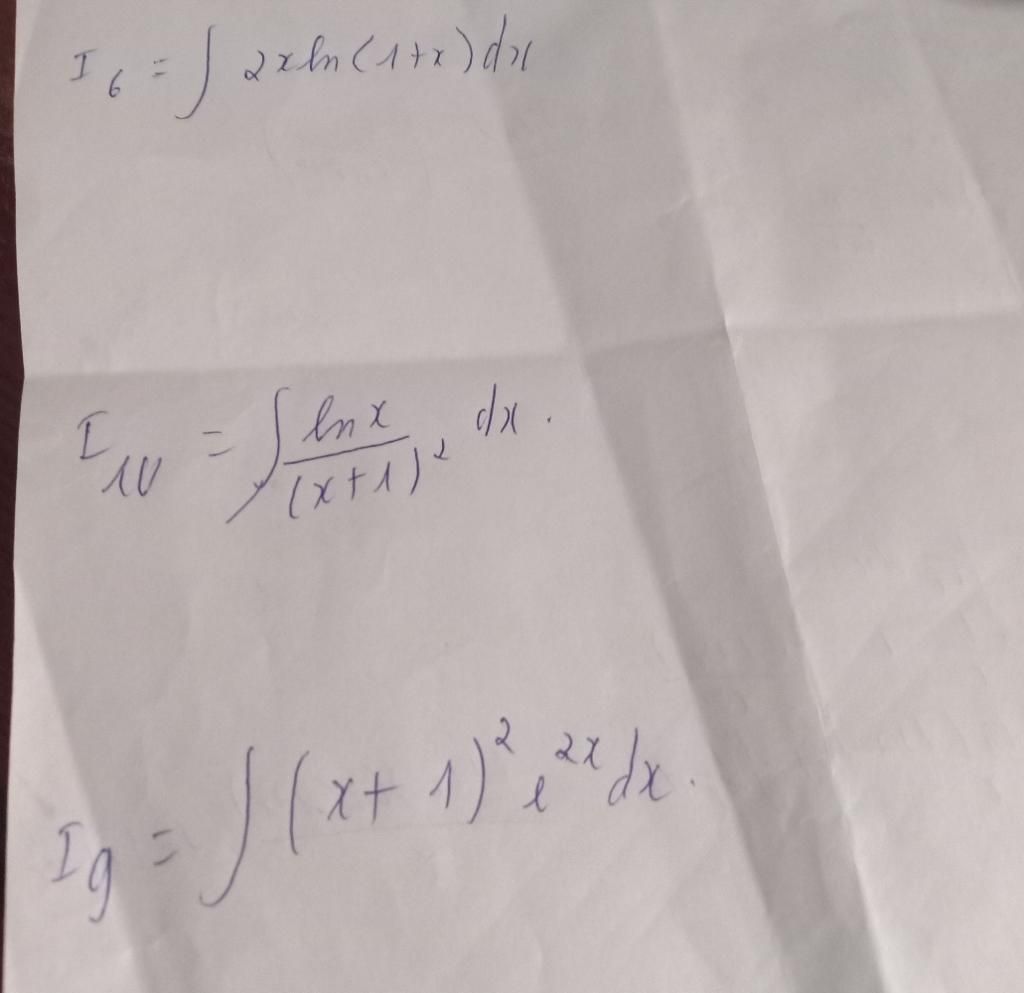 I₆ = ∫ 2x ln(1+x) dx
I₁₀ = ∫ ln x / (x+1)² dx.
I₉ = ∫ (x+1)² e²ˣ dx.